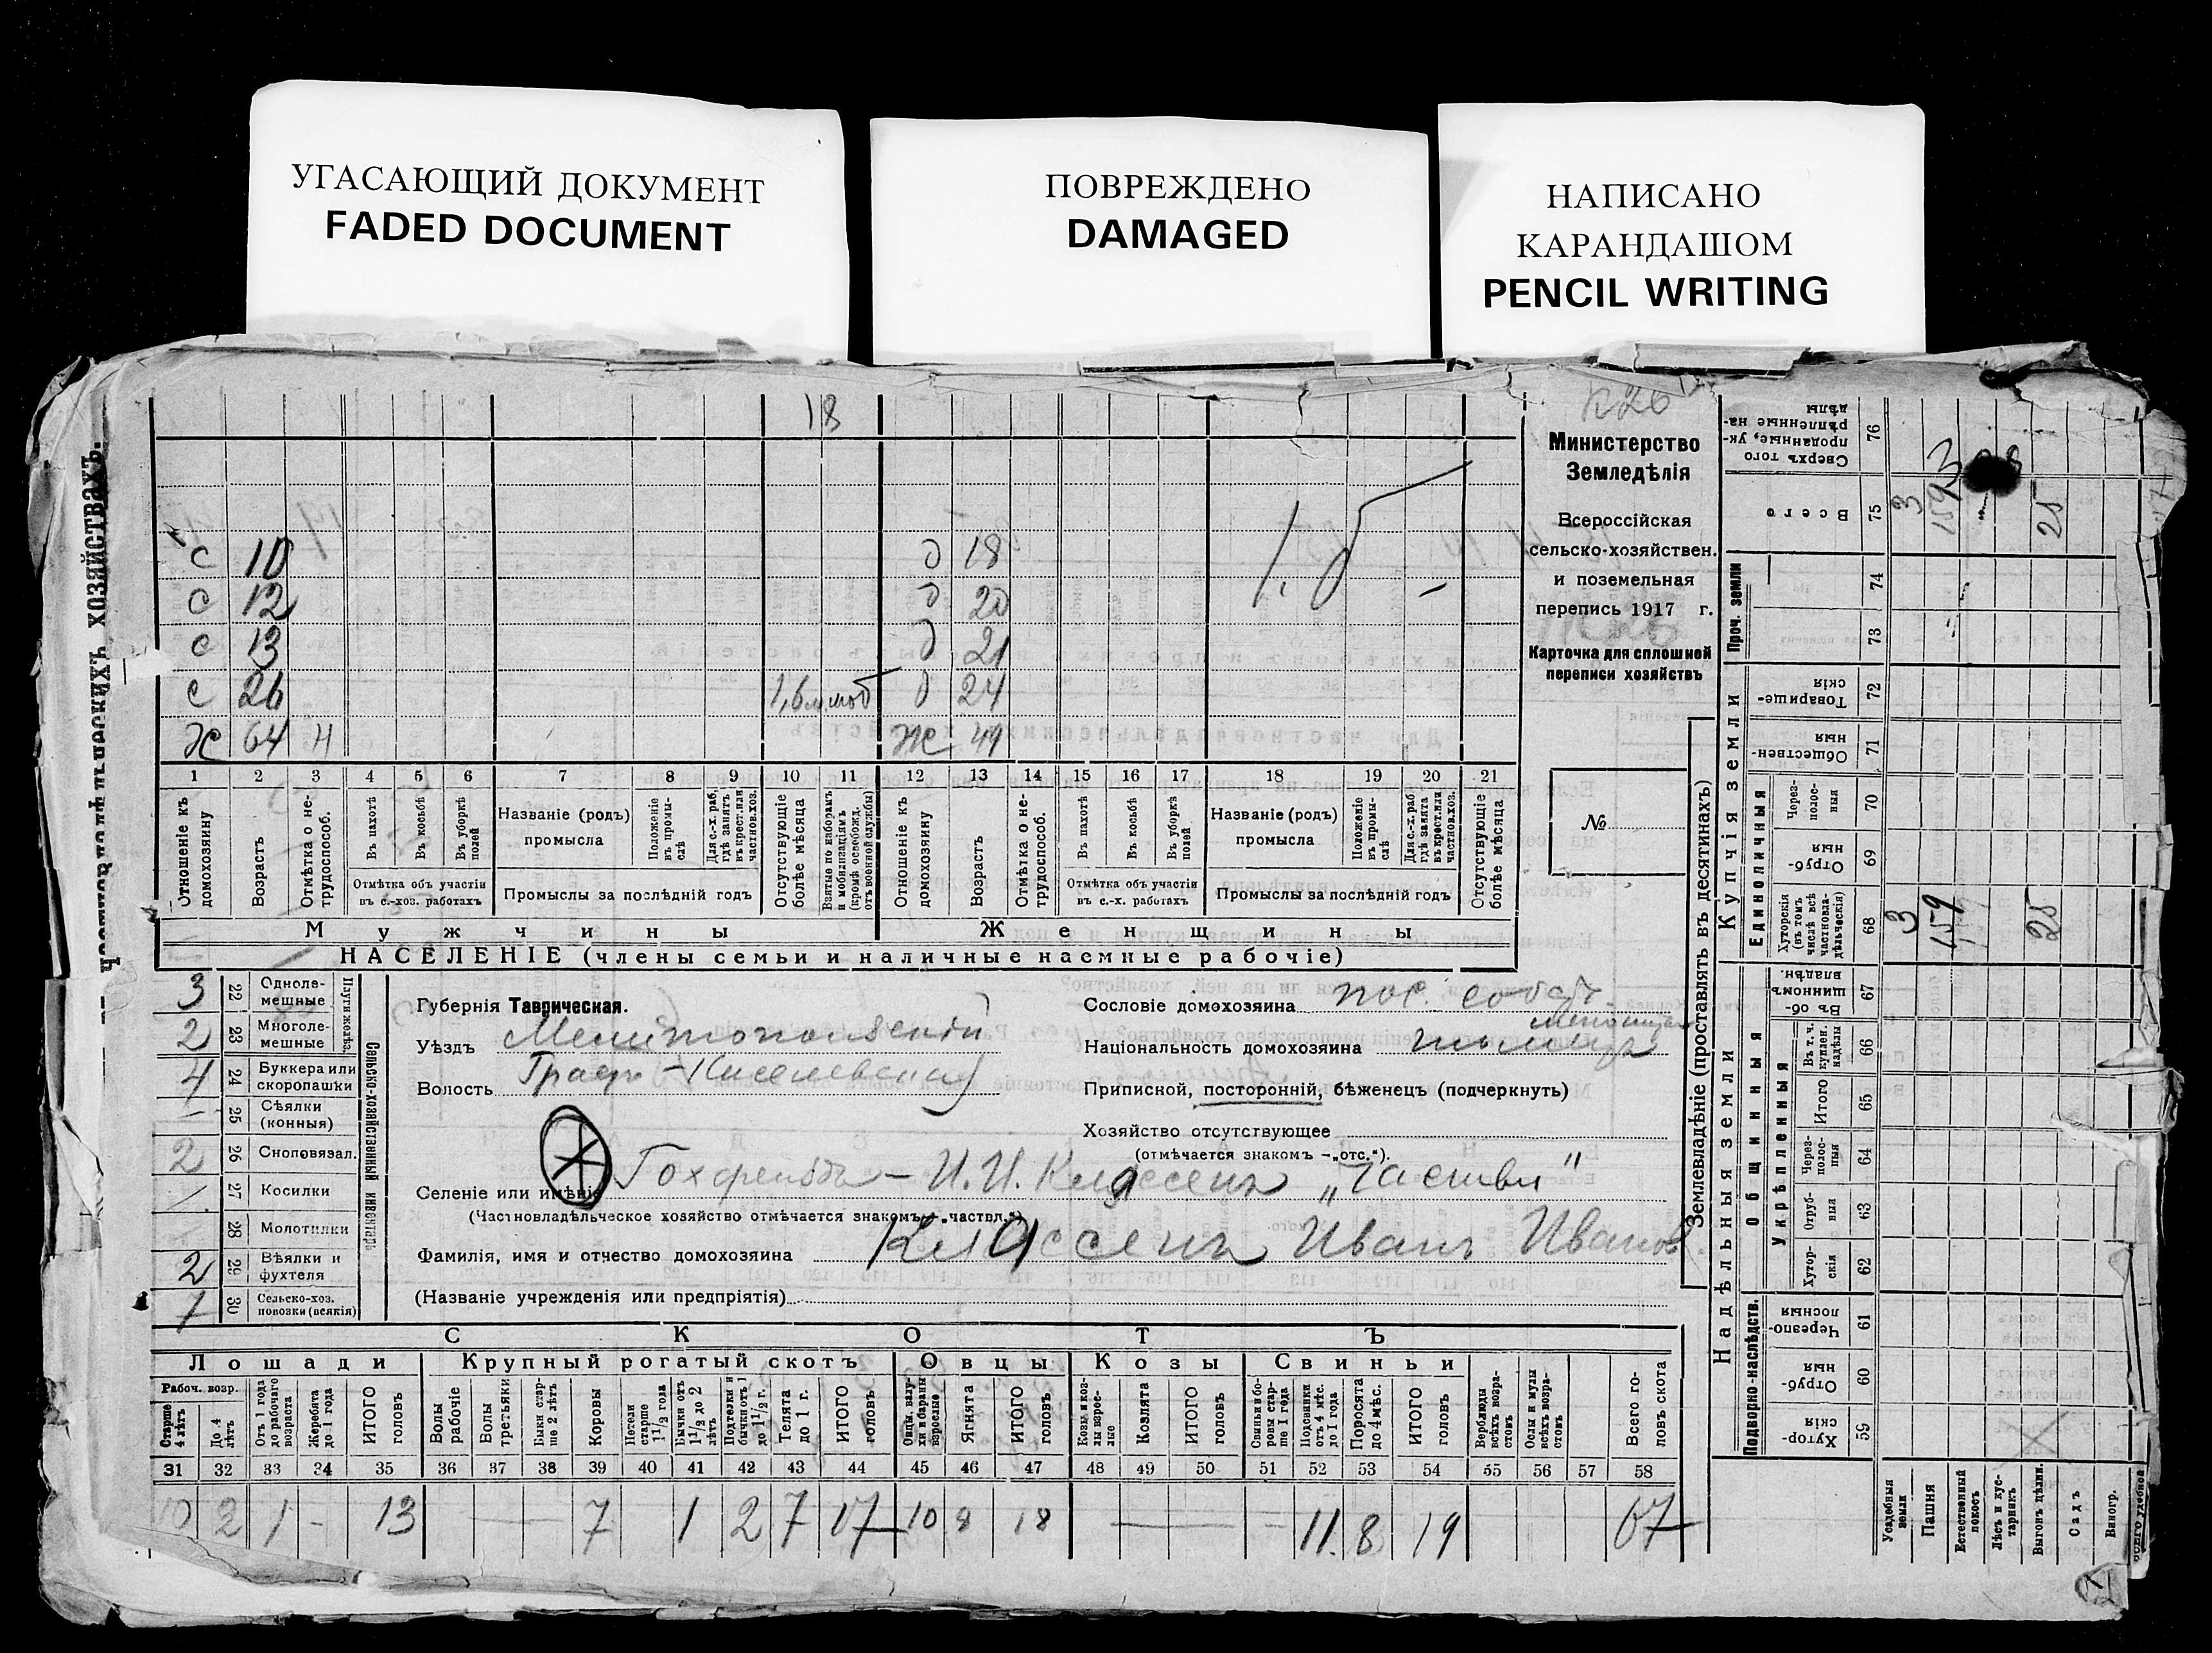 УГАСАЮЩИЙ ДОКУМЕНТ
FADED DOCUMENT
ПОВРЕЖДЕНО
DAMAGED
НАПИСАНО
КАРАНДАШОМ
PENCIL WRITING
хозяйствахъ.
18
с 10 д 18
с 12 д 20
с 13 д 21
с 26 д 24
Ж 64 Н Ж 49
1 2 3 4 5 6 7 8 9 10 11 12 13 14 15 16 17 18 19 20 21
Отношеніе къ домохозяину
Возрастъ
Отмѣтка о нетрудоспособ.
Въ пахотѣ
Въ косьбѣ
Въ уборкѣ полей
Отмѣтка объ участіи въ с.-хоз. работахъ
Названіе (родъ) промысла
Положеніе въ промыслѣ
Для с.-х. раб. гдѣ занятъ въ крест. или частнов. хоз.
Промыслы за послѣдній годъ
Отсутствующіе болѣе мѣсяца
Взятые по наборамъ и мобилизаціямъ (кромѣ освобожд. отъ военной службы)
Отношеніе къ домохозяину
Возрастъ
Отмѣтка о нетрудоспособ.
Въ пахотѣ
Въ косьбѣ
Въ уборкѣ полей
Отмѣтка объ участіи въ с.-х. работахъ
Названіе (родъ) промысла
Положеніе въ промыслѣ
Для с.-х. раб. гдѣ занята въ крест. или частнов. хоз.
Промыслы за послѣдній годъ
Отсутствующіе болѣе мѣсяца
Мужчины Женщины
НАСЕЛЕНІЕ (члены семьи и наличные наемные рабочіе)
Министерство
Земледѣлія
Всероссійская
сельско-хозяйствен.
и поземельная
перепись 1917 г.
Карточка для сплошной
переписи хозяйствъ
№
3 22 Однолемешные
2 23 Многолемешные
Плуги желѣз.
4 24 Буккера или скоропашки
25 Сѣялки (конныя)
2 26 Сноповязал.
27 Косилки
28 Молотилки
2 29 Вѣялки и фухтеля
1 30 Сельско-хоз. повозки (всякія)
Сельско-хозяйственный инвентарь
Губернія Таврическая.
Уѣздъ Мелитопольскій
Волость Граф-Киселевская
Селеніе или имѣніе Гохфельдъ - И. И. Классенъ „Частвл"
(Частновладѣльческое хозяйство отмѣчается знакомъ - „частвл.").
Фамилія, имя и отчество домохозяина Классенъ Иванъ Иванов
(Названіе учрежденія или предпріятія)
Сословіе домохозяина пос. собст.
Національность домохозяина
Приписной, посторонній, бѣженецъ (подчеркнуть)
Хозяйство отсутствующее
(отмѣчается знакомъ - „отс.").
СКОТЪ
Лошади Крупный рогатый скотъ Овцы Козы Свиньи
Рабоч. возр.
Старше 4 лѣтъ
До 4 лѣтъ
Отъ 1 года до рабочаго возраста
Жеребята до 1 года
ИТОГО головъ
Волы рабочіе
Волы третьяки
Быки старше 2 лѣтъ
Коровы
Нетели старше 1 1/2 года
Бычки отъ 1 1/2 до 2 лѣтъ
Подтелки и бычки отъ 1 до 1 1/2 г.
Телята до 1 г.
ИТОГО головъ
Овцы, валухи и бараны взрослые
Ягнята
ИТОГО головъ
Козы и козлы взрослые
Козлята
ИТОГО головъ
Свиньи и боровы старше 1 года
Подсвинки отъ 4 мѣс. до 1 года
Поросята до 4 мѣс.
ИТОГО головъ
Верблюды всѣхъ возрастовъ
Ослы и мулы всѣхъ возрастовъ
Всего головъ скота
31 32 33 34 35 36 37 38 39 40 41 42 43 44 45 46 47 48 49 50 51 52 53 54 55 56 57 58
10 2 1 - 13 — 7 1 2 7 17 10 8 18 — 11 8 19 67
Землевладѣніе (проставлять въ десятинахъ)
Надѣльныя земли
Купчія земли
Проч. земли
Подворно-наслѣдств.
Общинныя
Укрѣпленныя
Единоличныя
Хуторскія 59
Отрубныя 60
Черезполосныя 61
Хуторскія 62
Отрубныя 63
Черезполосныя 64
Итого 65
Въ т. ч. куплен. надѣлы 66
Въ общинномъ владѣн. 67
Хуторскія (въ томъ числѣ всѣ частновладѣльческія) 68
Отрубныя 69
Черезполосныя 70
Общественныя 71
Товарищескія 72
73
74
Всего 75
Сверхъ того проданные, укрѣпленные надѣлы 76
Усадебныя земли 3 3
Пашня 159 159
Естественный покосъ
Лѣсъ и кустарникъ
Выгонъ дѣлин. 25 25
Садъ
Виногр.